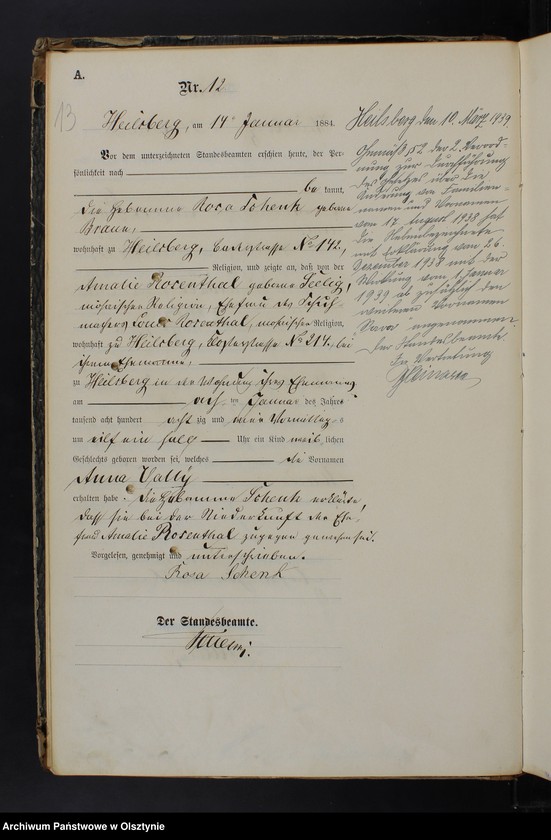 A.
Nr. 12
13
Heilsberg, am 14 Januar 1884
Vor dem unterzeichneten Standesbeamten erschien heute, der Per-
sönlichkeit nach
be kannt,
die Hebamme Rosa Schenk geborene
Braun,
wohnhaft zu Heilsberg, No 142,
Religion, und zeigte an, daß von der
Amalie Rosenthal geborene Seelig,
mosaischer Religion, Ehefrau des Schuh-
machers Rosenthal, mosaischer Religion,
wohnhaft zu Heilsberg, No 214, bei
ihrem Ehemanne,
zu Heilsberg in der Wohnung ihres Ehemannes
am acht ten Januar des Jahres
tausend acht hundert achtzig und vier Vormittags
um eilf ein halb Uhr ein Kind weib lichen
Geschlechts geboren worden sei, welches die Vornamen
Anna Vally
erhalten habe. Die Hebamme Schenk erklärte,
daß sie bei der Niederkunft der Ehe-
frau Amalie Rosenthal zugegen gewesen sei.
Vorgelesen, genehmigt und unterschrieben.
Rosa Schenk
Der Standesbeamte.
Heilsberg den 10. März 1939.
Gemäß § 2 der 2. Verord-
nung zur Durchführung
des Gesetzes über die
Änderung von Familien-
namen und Vornamen
vom 17. August 1938 hat
die Nebenbezeichnete
mit Erklärung vom 26.
Dezember 1938 mit der
Wirkung vom 1. Januar
1939 ab zusätzlich den
weiteren Vornamen
Sara angenommen.
Der Standesbeamte
In Vertretung
Archiwum Państwowe w Olsztynie